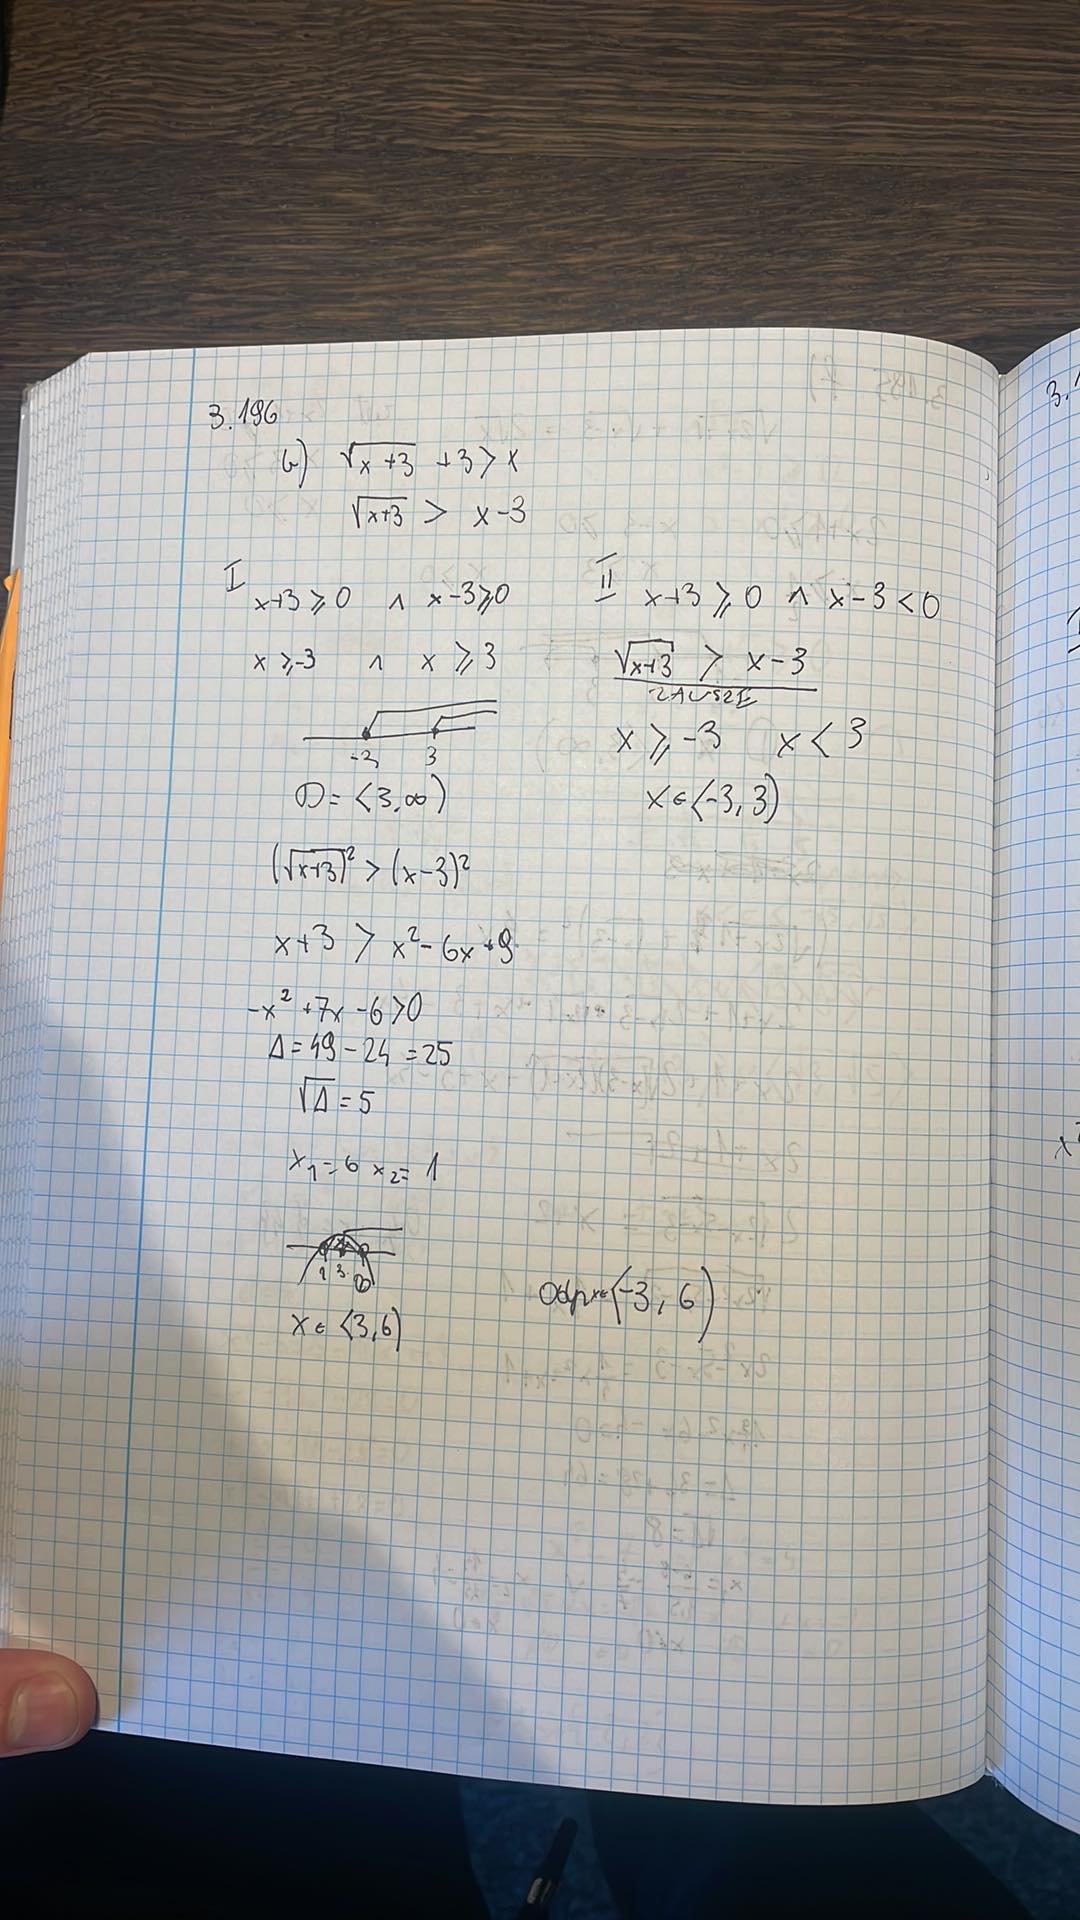 3.196
b) √(x+3) +3 > x
√(x+3) > x-3
I
x+3 ⩾ 0 ∧ x-3 ⩾ 0
x ⩾ -3 ∧ x ⩾ 3
-3 3
D = ⟨3, ∞)
(√(x+3))² > (x-3)²
x+3 > x² - 6x + 9
-x² + 7x - 6 > 0
Δ = 49 - 24 = 25
√Δ = 5
x₁ = 6 x₂ = 1
1 3 6
x ∈ ⟨3, 6)
II
x+3 ⩾ 0 ∧ x-3 < 0
√(x+3) > x-3
ZAWSZE
x ⩾ -3 x < 3
x ∈ ⟨-3, 3)
Odp x ∈ ⟨-3, 6)
3.